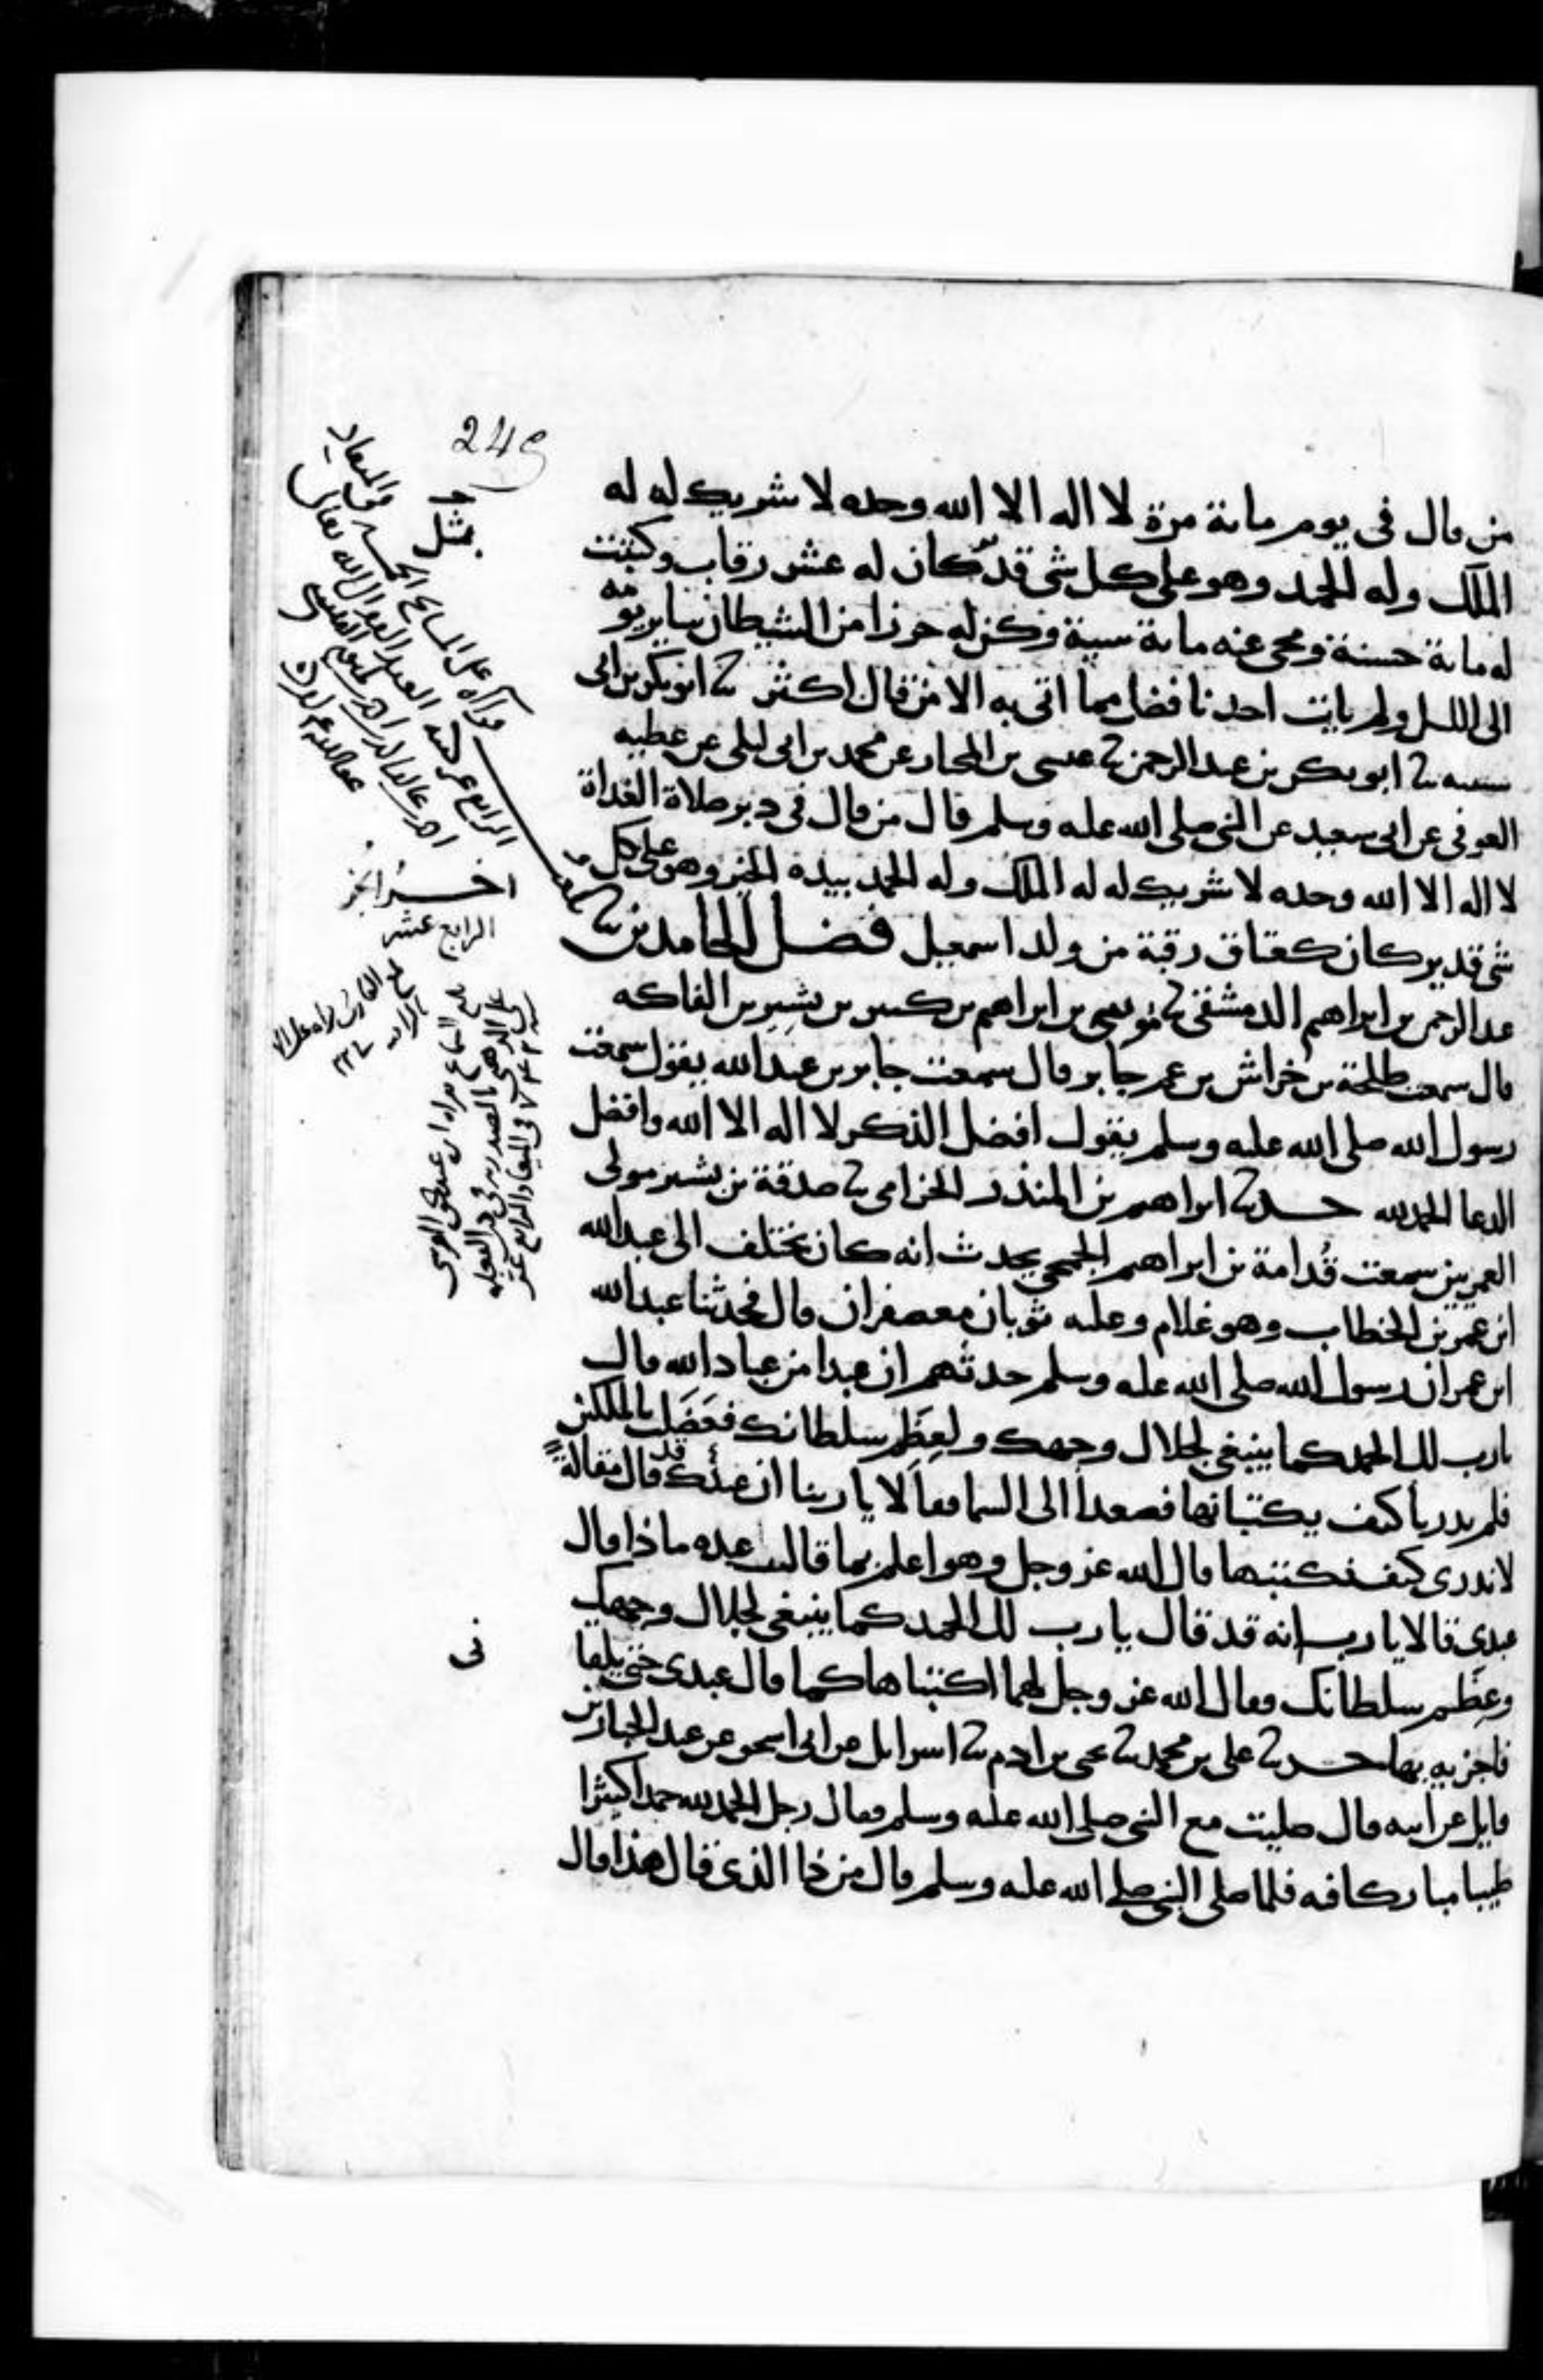 249
من قال في يوم مائة مرة لا اله الا الله وحده لا شريك له له
الملك وله الحمد وهو على كل شى قدير كان له عشر رقاب وكتبت
له مائة حسنة ومحى عنه مائة سيئة وكن له حرزا من الشيطان سائر يومه
الى الليل ولم يات احد بافضل مما اتى به الا من قال اكثر ثنا ابو بكر بن ابى
شيبه ثنا ابو بكر بن عبد الرحمن ثنا عيسى بن المختار عن محمد بن ابى ليلى عن عطيه
العوفى عن ابى سعيد عن النبى صلى الله عليه وسلم قال من قال فى دبر صلاة الغداة
لا اله الا الله وحده لا شريك له له الملك وله الحمد بيده الخير وهو على كل
شى قدير كان كعتاق رقبة من ولد اسمعيل فضل الحامدين ثنا
عبد الرحمن بن ابراهيم الدمشقى ثنا موسى بن ابراهيم بن كثير بن بشير بن الفاكه
قال سمعت طلحة بن خراش بن عم جابر قال سمعت جابر بن عبد الله يقول سمعت
رسول الله صلى الله عليه وسلم يقول افضل الذكر لا اله الا الله وافضل
الدعا الحمد لله حدثنا ابراهيم بن المنذر الحزامى ثنا صدقة بن بشير مولى
العمريين سمعت قُدامة بن ابراهيم الجمحى يحدث انه كان يختلف الى عبد الله
ابن عمر بن الخطاب وهو غلام وعليه ثوبان معصفران قال فحدثنا عبد الله
ابن عمر ان رسول الله صلى الله عليه وسلم حدثهم ان عبدا من عباد الله قال
يارب لك الحمد كما ينبغى لجلال وجهك ولعِظَم سلطانك فعَضَلت بالملكين
فلم يدريا كيف يكتبانها فصعدا الى السما فقالا يا ربنا ان عبدك قد قال مقالةً
لاندرى كيف نكتبها قال الله عز وجل وهو اعلم بما قال عبده ماذا قال
عبدى قالا يا رب انه قد قال يا رب لك الحمد كما ينبغى لجلال وجهك
وعِظَم سلطانك فقال الله عز وجل لهما اكتباها كما قال عبدى حتى يلقانى
فاجزيه بها حدثنا على بن محمد ثنا يحيى بن ادم ثنا اسرائل عن ابى اسحق عن عبد الجبار بن
وايل عن ابيه قال صليت مع النبى صلى الله عليه وسلم فقال رجل الحمد لله حمدا كثيرا
طيبا مباركا فيه فلما صلى النبى صلى الله عليه وسلم قال من ذا الذى قال هذا قال
اخر الجز
الرابع عشر